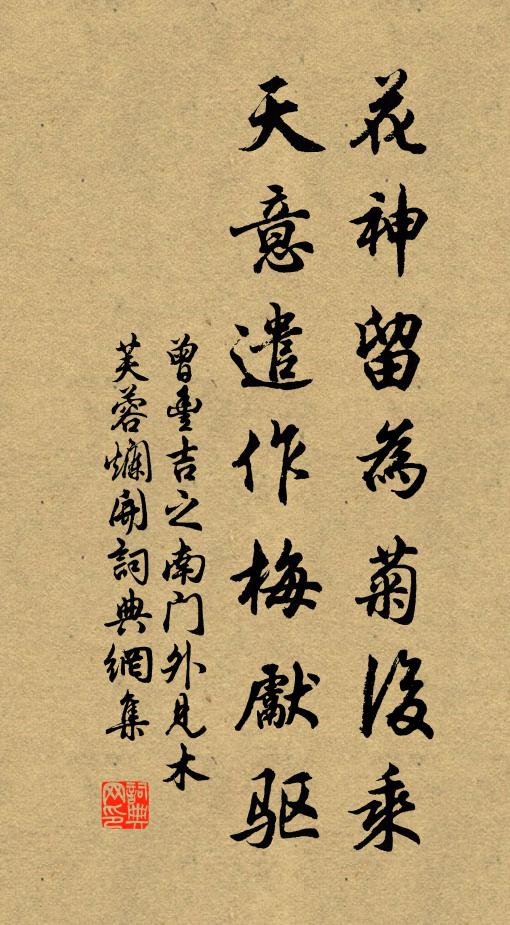 花神留為菊後乘
天意遣作梅獻驱
曾豐吉之南门外见木
芙蓉爛開詞典網集
詞典网印